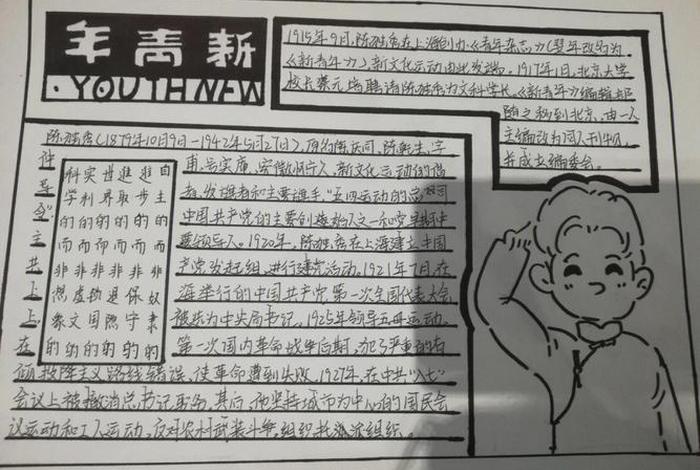 年青新
· YOUTH NEW
1915年9月,陈独秀在上海创办《青年杂志》(翌年改名为
《新青年》),新文化运动由此发端。1917年1月,北京大学
校长蔡元培聘请陈独秀为文科学长,《新青年》编辑部
随之移到北京,由一人
主编改为同人刊物,
并成立编委会。
陈独秀(1879年10月9日-1942年5月27日),原名陈庆同,陈乾生,字
仲甫,号实庵,安徽怀宁人,新文化运动的倡
导者,发起者和主要旗手,"五四运动的总司
令",中国共产党的主要创始人之一和党早期
主要领导人。1920年,陈独秀在上海建立中国
共产党发起组,进行建党活动。1921年7月在
上海举行的中国共产党第一次全国代表大会
上被选为中央局书记。1925年领导五卅运动。
在第一次国内革命战争后期,犯了严重的右
倾投降主义路线错误,使革命遭到失败。1927年,在中共"八七"
会议上被撤消总书记职务,其后,他坚持城市为中心的国民会
议运动和工人运动,反对农村武装斗争,组织托派组织。
自主的而非奴隶的
进步的而非保守的
进取的而非退的
世界的而非国的
实利的而非虚文的
科学的而非想象的